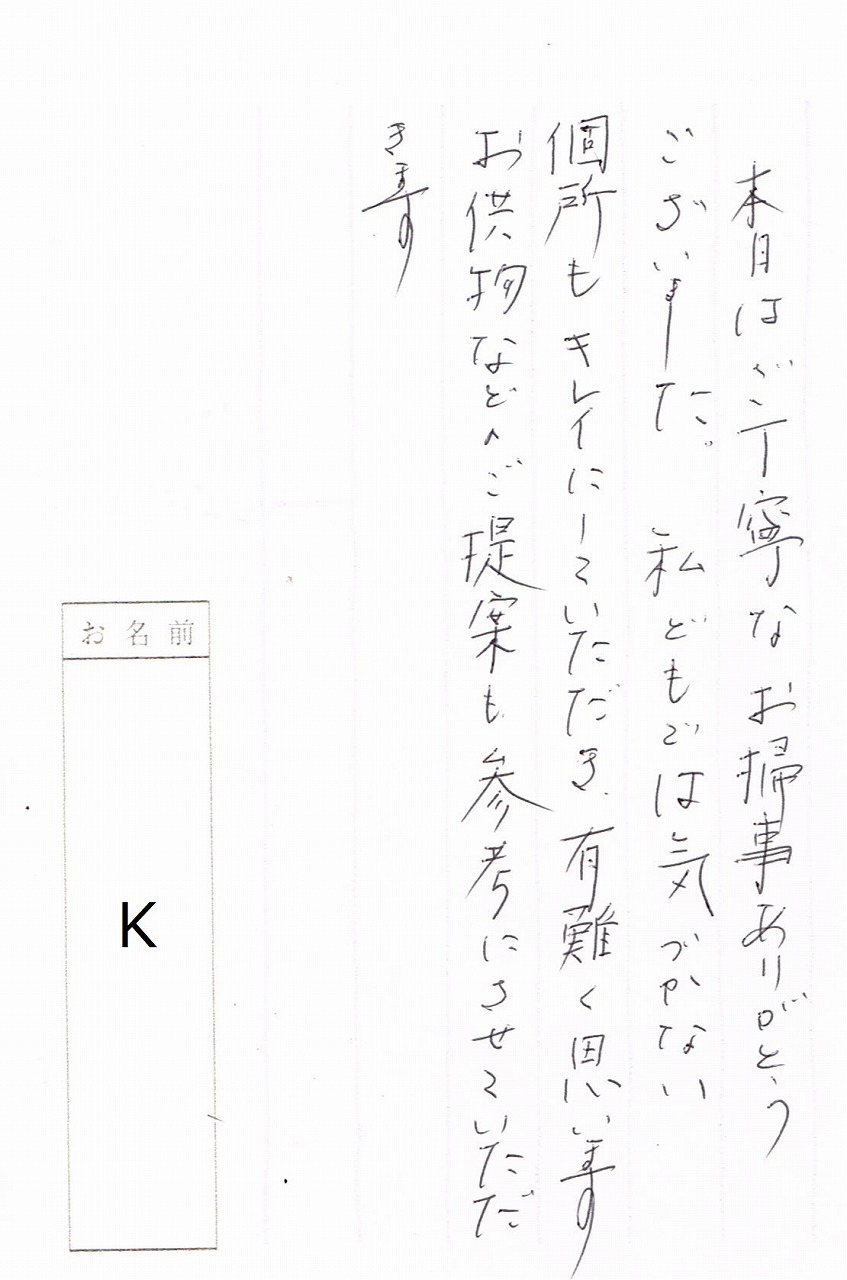 本日はご丁寧なお掃事ありがとう
ございました。私どもでは気づかない
個所もキレイにしていただき、有難く思います
お供物などへご提案も参考にさせていただ
きます
お名前
K